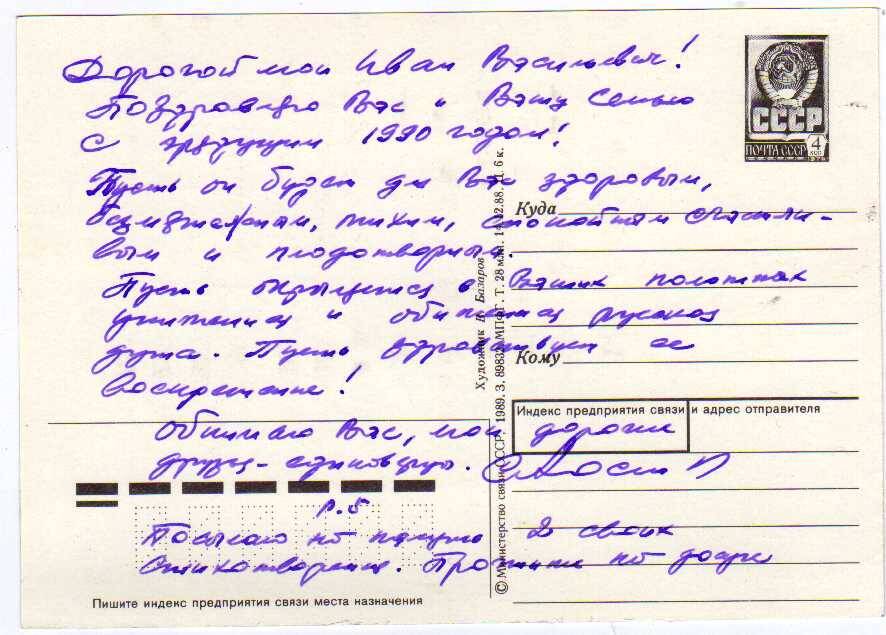 Дорогой мой Иван Васильевич!
Поздравляю Вас и Вашу семью
с грядущим 1990 годом!
Пусть он будет для Вас здоровым,
безмятежным, тихим, спокойным счастли-
вым и плодотворным.
Пусть окрылится в Ваших полотнах
униженная и обиженная русская
душа. Пусть здравствует ее
воскресение!
Обнимаю Вас, мой дорогой
друг-единоверец.
P.S
Посылаю на память 2 своих
стихотворения. Прочтите на досуге
СССР
ПОЧТА СССР 4
КОП
Куда
Кому
Индекс предприятия связи и адрес отправителя
Пишите индекс предприятия связи места назначения
Художник В. Базаров
© Министерство связи СССР. 1989. З. 89832. МПФГ. Т. 28 млн. 14.12.88. Ц. 6 к.